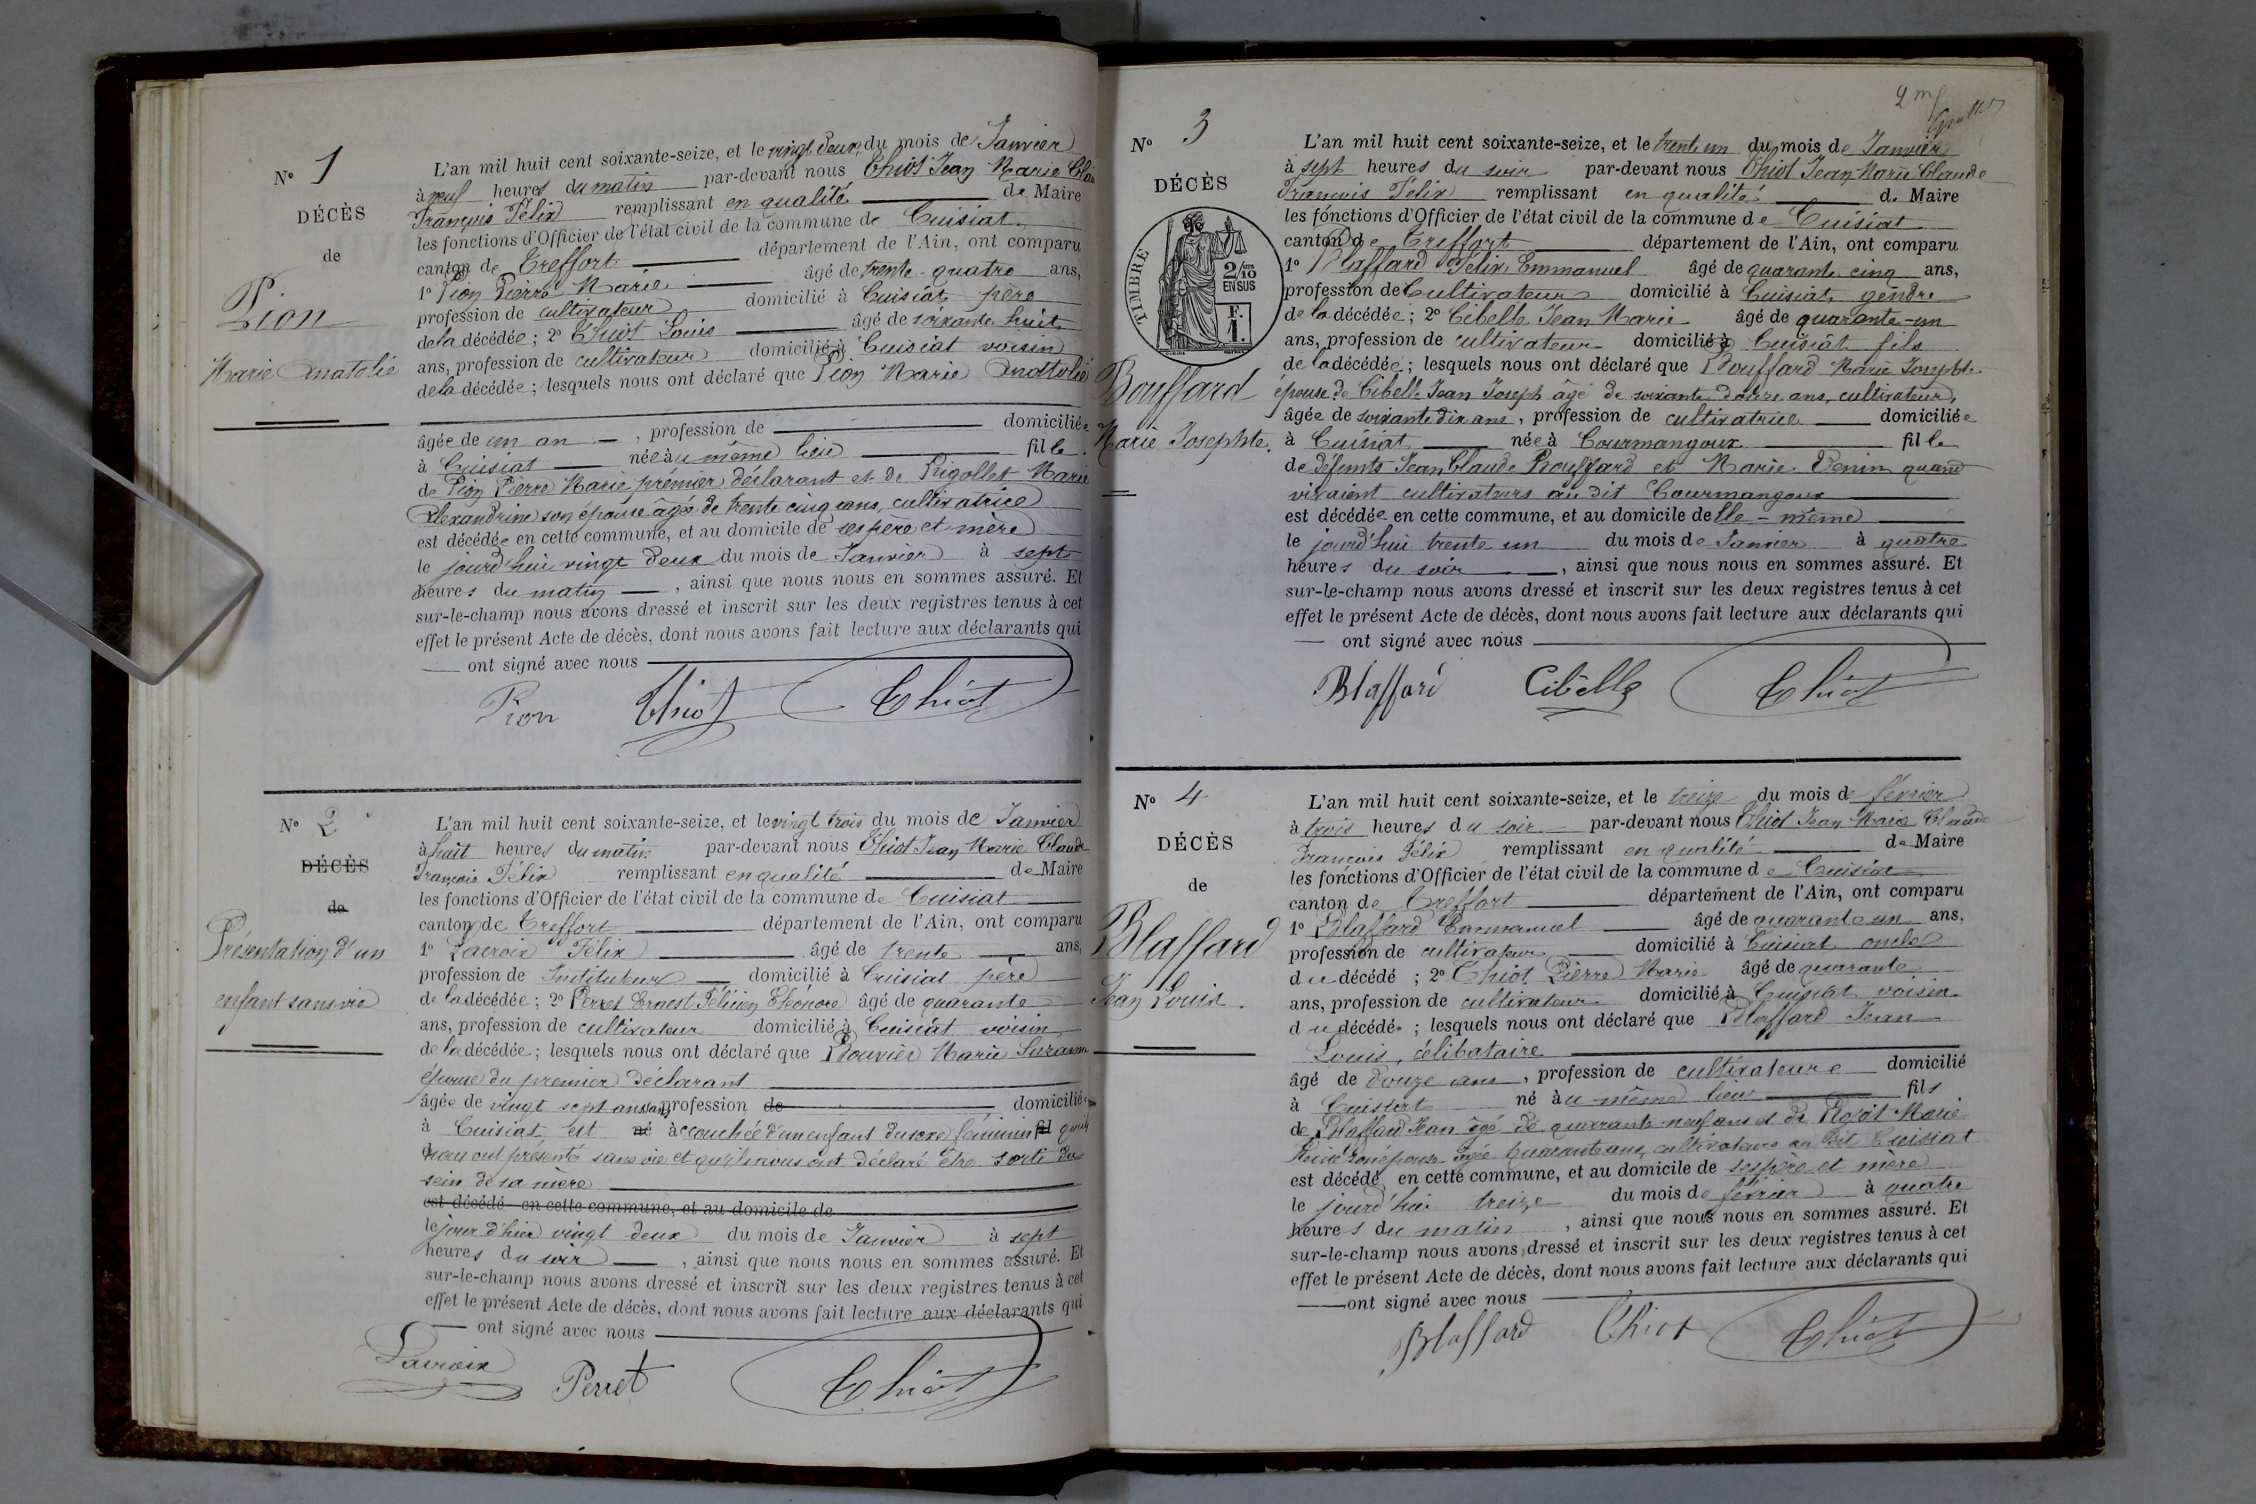 N° 1
DÉCÈS
de
Pion
Marie Anatolie
L'an mil huit cent soixante-seize, et le vingt deux du mois de Janvier
à neuf heures du matin par-devant nous Thiot Jean Marie
François Félix remplissant en qualité de Maire
les fonctions d'Officier de l'état civil de la commune de Cuisiat
canton de Treffort département de l'Ain, ont comparu
1° Pion Pierre Marie âgé de trente-quatre ans,
profession de cultivateur domicilié à Cuisiat père
de la décédée; 2° Thiot Louis âgé de soixante huit
ans, profession de cultivateur domicilié à Cuisiat voisin
de la décédée; lesquels nous ont déclaré que Pion Marie Anatolie
âgée de un an, profession de domiciliée
à Cuisiat née au même lieu fille
de Pion Pierre Marie premier déclarant et de Rigollet Marie
Alexandrine son épouse âgé de trente cinq ans, cultivatrice
est décédée en cette commune, et au domicile de ses père et mère
le jourd'hui vingt deux du mois de Janvier à sept
heures du matin, ainsi que nous nous en sommes assuré. Et
sur-le-champ nous avons dressé et inscrit sur les deux registres tenus à cet
effet le présent Acte de décès, dont nous avons fait lecture aux déclarants qui
ont signé avec nous
Pion Thiot Thiot
N° 2
DÉCÈS
de
Présentation d'un
enfant sans vie
L'an mil huit cent soixante-seize, et le vingt trois du mois de Janvier
à huit heures du matin par-devant nous Thiot Jean Marie Claude
François Félix remplissant en qualité de Maire
les fonctions d'Officier de l'état civil de la commune de Cuisiat
canton de Treffort département de l'Ain, ont comparu
1° Lacroix Félix âgé de trente ans,
profession de Instituteur domicilié à Cuisiat père
de la décédée; 2° Perret Ernest Félicien Eléonore âgé de quarante
ans, profession de cultivateur domicilié à Cuisiat voisin
de la décédée; lesquels nous ont déclaré que Bouvier Marie Suzanne
épouse du premier déclarant
âgée de vingt sept ans sans profession de domiciliée
à Cuisiat est né accouchée d'un enfant du sexe féminin fil qu'ils
nous ont présenté sans vie et qu'ils nous ont déclaré être sorti du
sein de sa mère
est décédé en cette commune, et au domicile de
le jour d'hier vingt deux du mois de Janvier à sept
heures du soir, ainsi que nous nous en sommes assuré. Et
sur-le-champ nous avons dressé et inscrit sur les deux registres tenus à cet
effet le présent Acte de décès, dont nous avons fait lecture aux déclarants qui
ont signé avec nous
Lacroix Perret Thiot
N° 3
DÉCÈS
TIMBRE
2/10
EN SUS
F.
1.
Bouffard
Marie Josephte.
L'an mil huit cent soixante-seize, et le trente un du mois de Janvier
à sept heures du soir par-devant nous Thiot Jean Marie Claude
François Félix remplissant en qualité de Maire
les fonctions d'Officier de l'état civil de la commune de Cuisiat
canton de Treffort département de l'Ain, ont comparu
1° Blaffard Félix Emmanuel âgé de quarante cinq ans,
profession de Cultivateur domicilié à Cuisiat gendre
de la décédée; 2° Cibelle Jean Marie âgé de quarante-un
ans, profession de cultivateur domicilié à Cuisiat fils
de la décédée; lesquels nous ont déclaré que Bouffard Marie Josephte
épouse de Cibelle Jean Joseph âgé de soixante douze ans, cultivateur,
âgée de soixante dix ans, profession de cultivatrice domiciliée
à Cuisiat née à Courmangoux fille
de défunts Jean Claude Bouffard et Marie Venin quand
vivaient cultivateurs au dit Courmangoux
est décédée en cette commune, et au domicile de elle-même
le jourd'hui trente un du mois de Janvier à quatre
heures du soir, ainsi que nous nous en sommes assuré. Et
sur-le-champ nous avons dressé et inscrit sur les deux registres tenus à cet
effet le présent Acte de décès, dont nous avons fait lecture aux déclarants qui
ont signé avec nous
Blaffard Cibelle Thiot
N° 4
DÉCÈS
de
Blaffard
Jean Louis.
L'an mil huit cent soixante-seize, et le treize du mois de février
à trois heures du soir par-devant nous Thiot Jean Marie Claude
François Félix remplissant en qualité de Maire
les fonctions d'Officier de l'état civil de la commune de Cuisiat
canton de Treffort département de l'Ain, ont comparu
1° Blaffard Emmanuel âgé de quarante un ans,
profession de cultivateur domicilié à Cuisiat oncle
du décédé; 2° Thiot Pierre Marie âgé de quarante
ans, profession de cultivateur domicilié à Cuisiat voisin
du décédé; lesquels nous ont déclaré que Blaffard Jean
Louis, célibataire
âgé de douze ans, profession de cultivateur domicilié
à Cuisiat né au même lieu fils
de Blaffard Jean âgé de quarante neuf ans et de Marie
son épouse âgée quarante ans, cultivateurs au dit Cuisiat
est décédé en cette commune, et au domicile de ses père et mère
le jourd'hui treize du mois de février à quatre
heures du matin, ainsi que nous nous en sommes assuré. Et
sur-le-champ nous avons dressé et inscrit sur les deux registres tenus à cet
effet le présent Acte de décès, dont nous avons fait lecture aux déclarants qui
ont signé avec nous
Blaffard Thiot Thiot